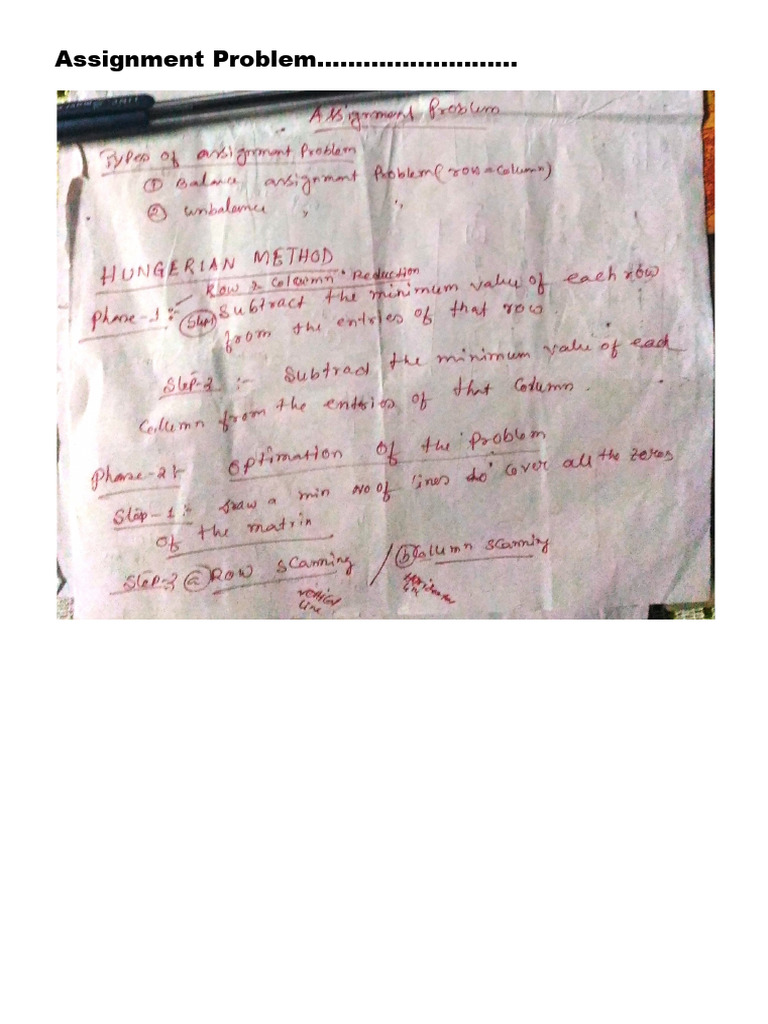 Assignment Problem..........................
Assignment Problem
Types of assignment Problem
① Balance assignment Problem (row = column)
② unbalance " "
HUNGERIAN METHOD
Row & Column Reduction
Phase-1 :- Step1 Subtract the minimum value of each row
from the entries of that row.
Step-2 :- Subtract the minimum value of each
Column from the entries of that Column.
Phase-2 :- Optimation of the Problem
Step-1 :- Draw a min no of lines to cover all the zeros
of the matrix
Step-2 ⓐ Row scanning / ⓑ Column scanning
vertical horizontal
line line